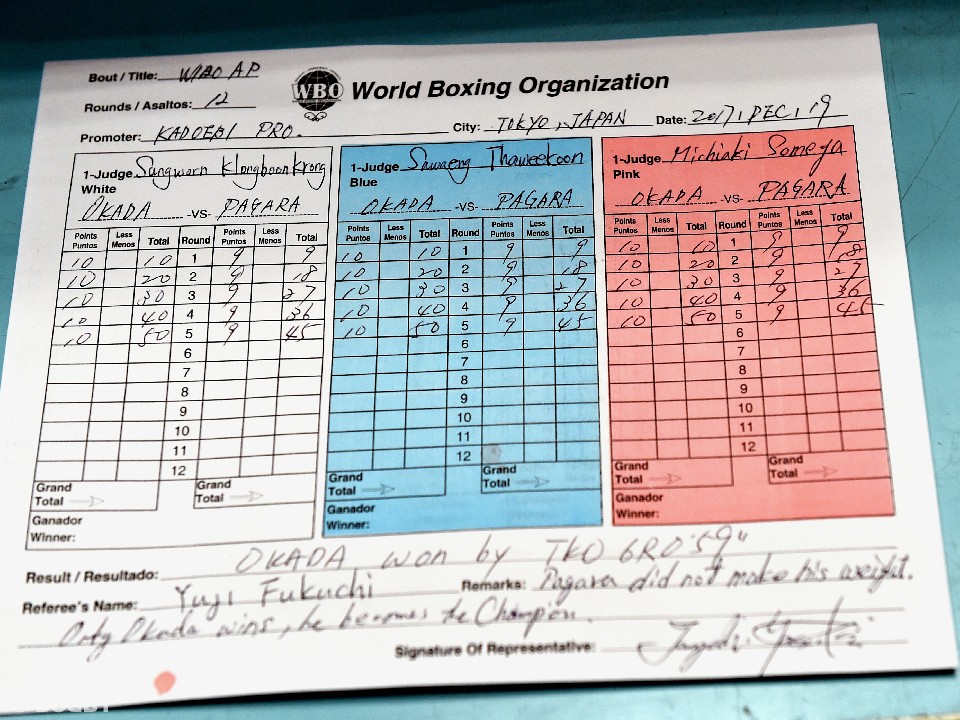 Bout / Title: WBO AP
WBO World Boxing Organization
Rounds / Asaltos: 12
Promoter: KADOEBI PRO. City: TOKYO, JAPAN Date: 2017, DEC, 19
1-Judge Sangworn Klongboonkrong
White
OKADA -VS- PAGARA
Points Puntos Less Menos Total Round Points Puntos Less Menos Total
10 10 1 9 9
10 20 2 9 18
10 30 3 9 27
10 40 4 9 36
10 50 5 9 45
6
7
8
9
10
11
12
Grand Total Grand Total
Ganador
Winner:
1-Judge Sawaeng Thaweekoon
Blue
OKADA -VS- PAGARA
Points Puntos Less Menos Total Round Points Puntos Less Menos Total
10 10 1 9 9
10 20 2 9 18
10 30 3 9 27
10 40 4 9 36
10 50 5 9 45
6
7
8
9
10
11
12
Grand Total Grand Total
Ganador
Winner:
1-Judge Michiaki Someya
Pink
OKADA -VS- PAGARA
Points Puntos Less Menos Total Round Points Puntos Less Menos Total
10 10 1 9 9
10 20 2 9 18
10 30 3 9 27
10 40 4 9 36
10 50 5 9 45
6
7
8
9
10
11
12
Grand Total Grand Total
Ganador
Winner:
Result / Resultado: OKADA won by TKO 6R0'59"
Referee's Name: Yuji Fukuchi Remarks: Pagara did not make his weight.
Only Okada wins, he becomes the Champion.
Signature Of Representative: